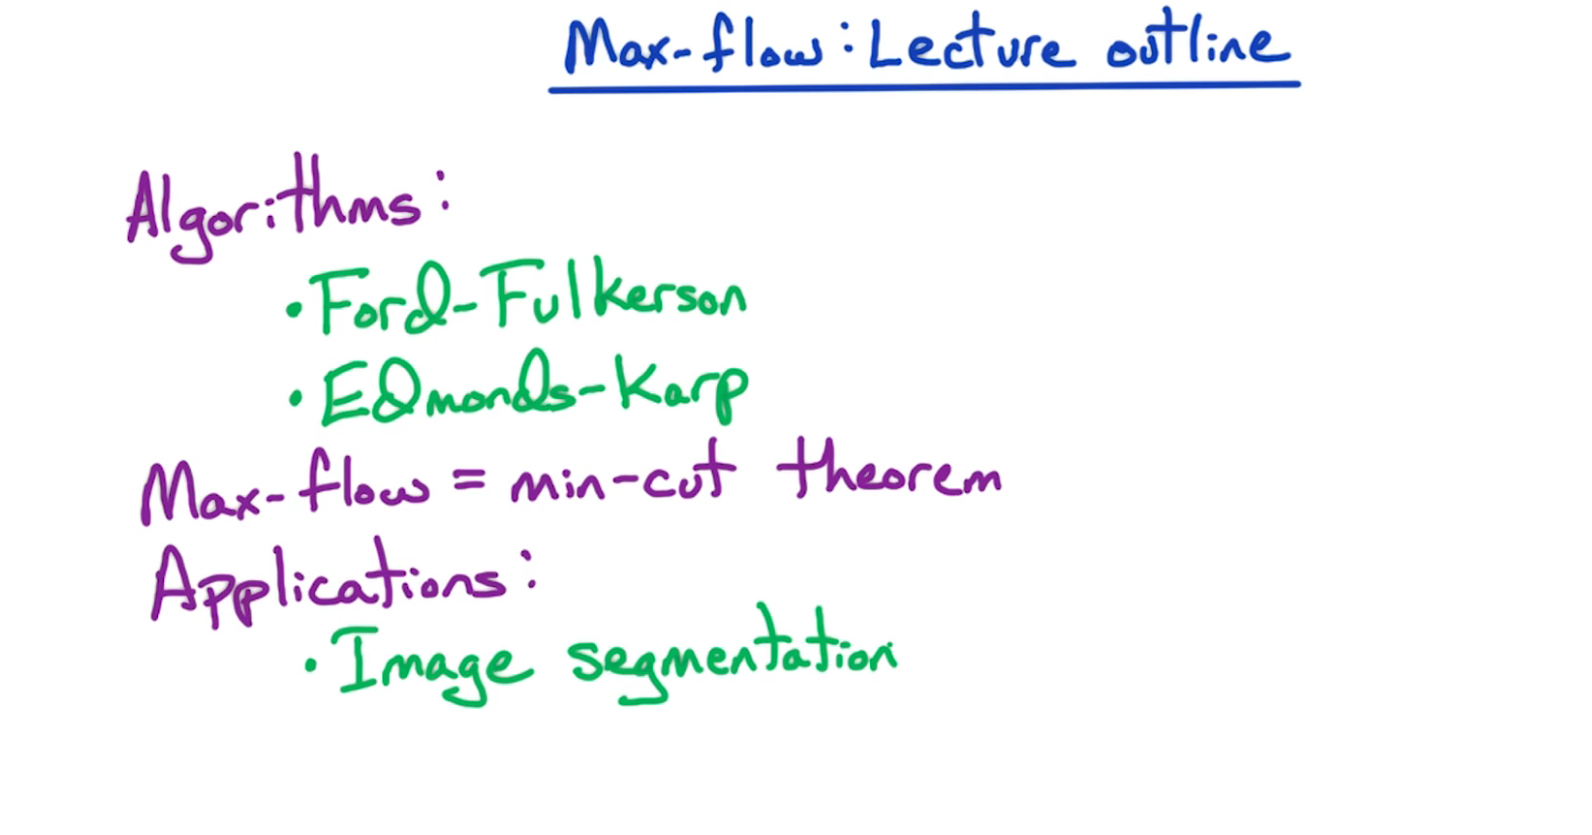 Max-flow: Lecture outline
Algorithms:
• Ford-Fulkerson
• Edmonds-Karp
Max-flow = min-cut theorem
Applications:
• Image segmentation